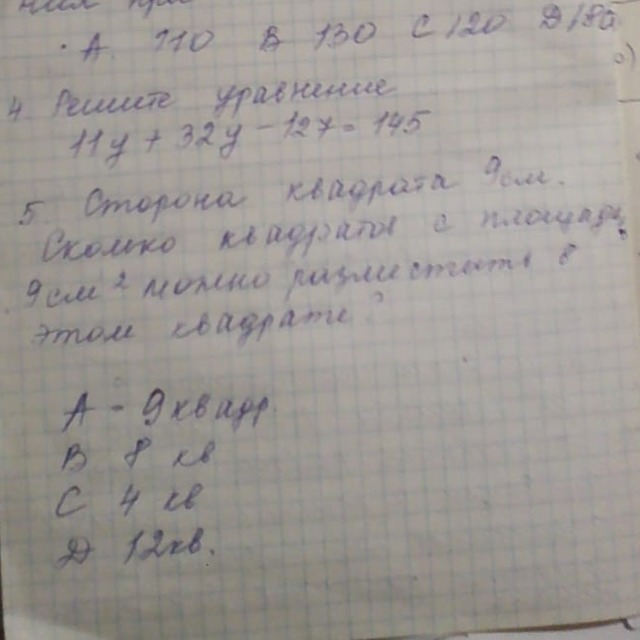 A 110 В 130 С 120 D
4 Решите уравнение
11у + 32у - 127 = 145
5 Сторона квадрата 9см.
Сколко квадратов с площади
9см² можно разместить в
этом квадрате?
А - 9 квадр
В 8 кв
С 4 кв
D 12кв.